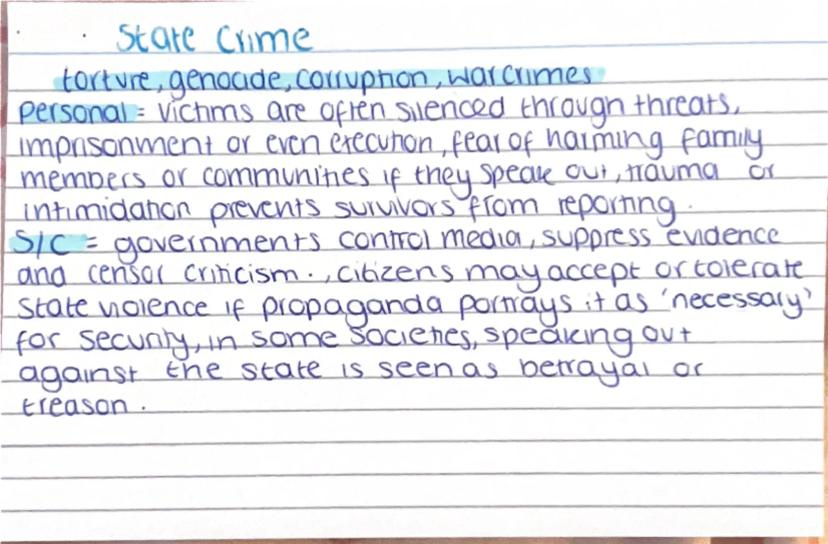 State Crime
torture, genocide, corruption, war crimes
personal = victims are often silenced through threats,
imprisonment or even execution, fear of harming family
members or communities if they speak out, trauma or
intimidation prevents survivors from reporting.
S/C = governments control media, suppress evidence
and censor criticism., citizens may accept or tolerate
state violence if propaganda portrays it as 'necessary'
for security, in some societies, speaking out
against the state is seen as betrayal or
treason.